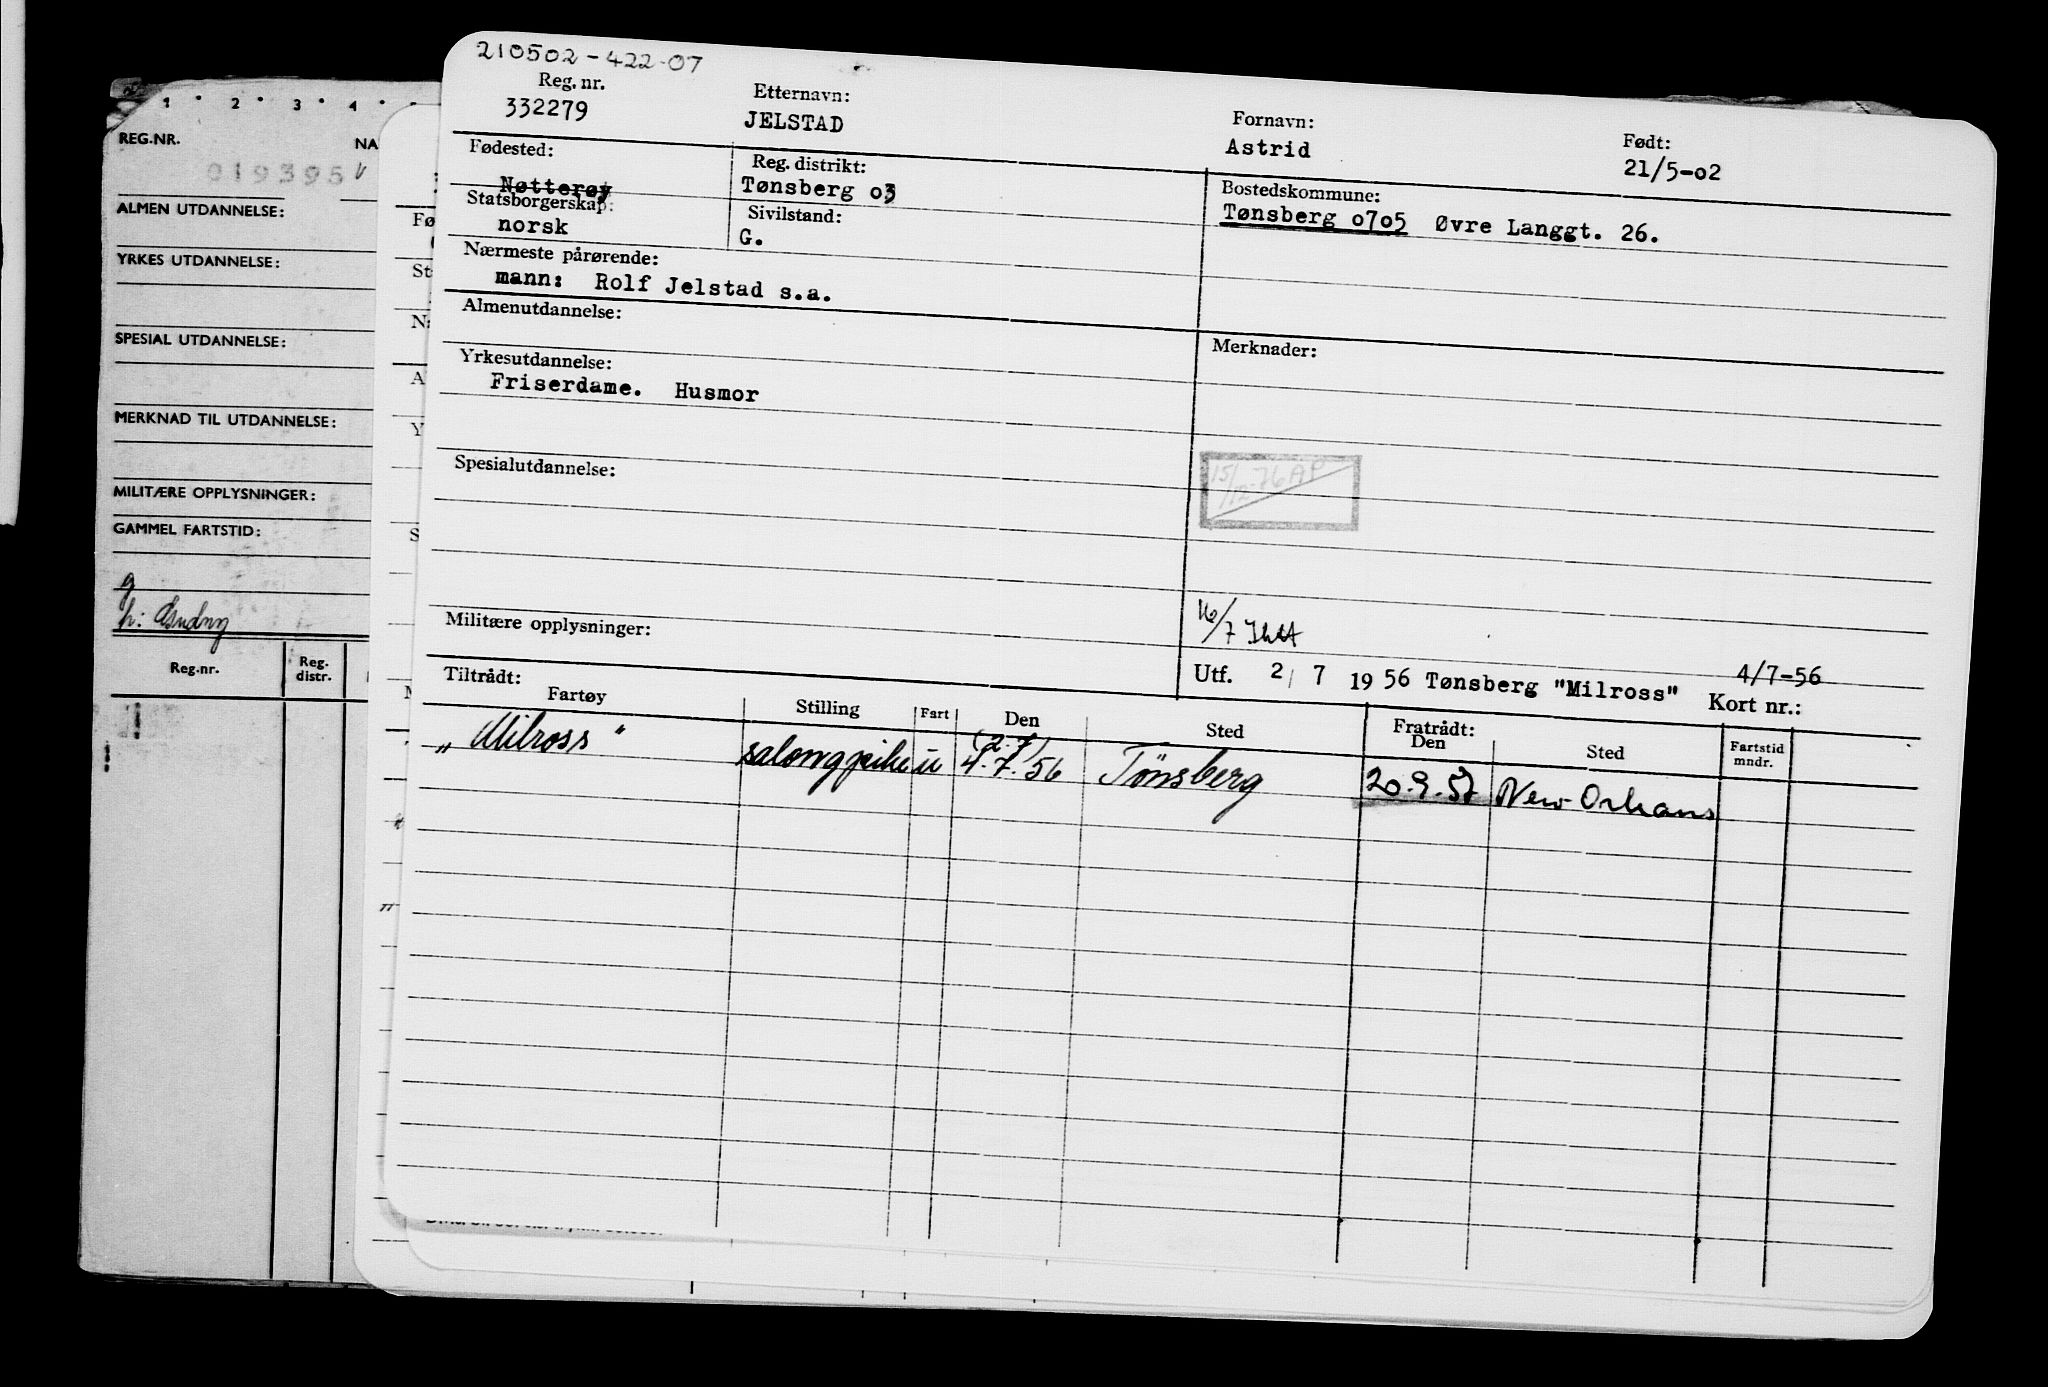 210502-422-07
Reg. nr.
332279
Etternavn:
JELSTAD
Fornavn:
Astrid
Født:
21/5-02
Fødested:
Nøtterøy
Reg. distrikt:
Tønsberg 03
Bostedskommune:
Tønsberg 0705 Øvre Langgt. 26.
Statsborgerskap:
norsk
Sivilstand:
G.
Nærmeste pårørende:
mann: Rolf Jelstad s.a.
Almenutdannelse:
Merknader:
Yrkesutdannelse:
Friserdame. Husmor
Spesialutdannelse:
15/12-76 AP
Militære opplysninger:
16/7
Utf. 2/7 1956 Tønsberg "Milross" Kort nr.:
4/7-56
Tiltrådt:
Fartøy Stilling Fart Den Sted
Fratrådt:
Den Sted
Fartstid
mndr.
(2.7)
"Milross" salongpike u 4.7.56 Tönsberg 20.9.57 New-Orleans
1 2 3 4
REG.NR.
NA
019395
ALMEN UTDANNELSE:
YRKES UTDANNELSE:
SPESIAL UTDANNELSE:
MERKNAD TIL UTDANNELSE:
MILITÆRE OPPLYSNINGER:
GAMMEL FARTSTID:
g
h: Gudny
Reg.nr.
Reg.
distr.
Fø
St
A
Y
S